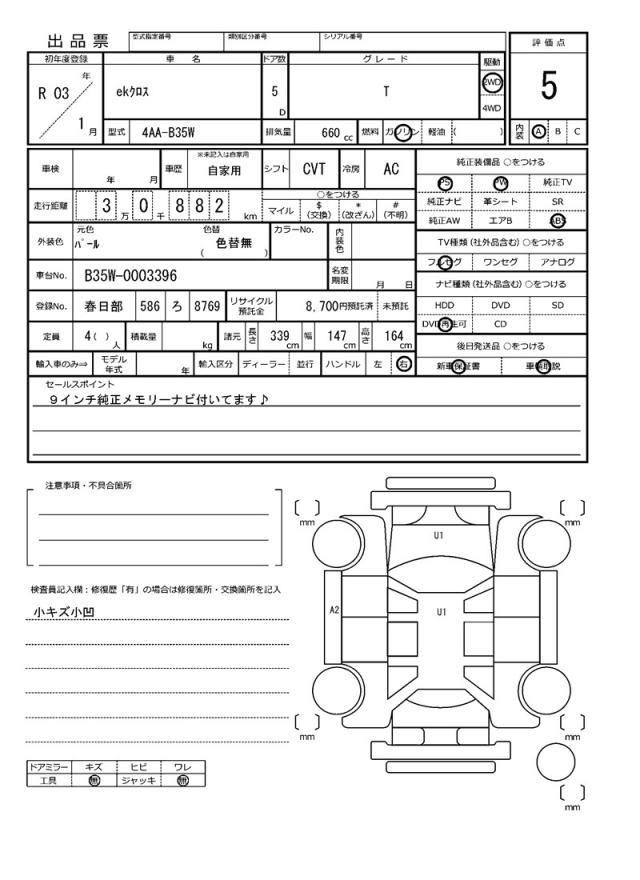 出品票 型式指定番号 類別区分番号 シリアル番号
評価点
初年度登録 車名 ドア数 グレード 駆動
R 03 年 ekクロス 5 D T 2WD 5
4WD
1 月 型式 4AA-B35W 排気量 660 cc 燃料 ガソリン 軽油 ( ) 内装 A B C
車検 年 月 車歴 ※未記入は自家用 自家用 シフト CVT 冷房 AC 純正装備品 ○をつける
PS PW 純正TV
走行距離 3 万 0 千 8 8 2 km ○をつける 純正ナビ 革シート SR
マイル $(交換) *(改ざん) #(不明) 純正AW エアB ABS
外装色 元色 パール 色替 色替無 ( ) カラーNo. 内装色 TV種類 (社外品含む) ○をつける
フルセグ ワンセグ アナログ
車台No. B35W-0003396 名変期限 月 日 ナビ種類 (社外品含む) ○をつける
登録No. 春日部 586 ろ 8769 リサイクル預託金 8,700円預託済 未預託 HDD DVD SD
DVD再生可 CD
定員 4( ) 人 積載量 kg 諸元 長さ 339 cm 幅 147 cm 高さ 164 cm 後日発送品 ○をつける
輸入車のみ⇒ モデル年式 年 輸入区分 ディーラー 並行 ハンドル 左 右 新車保証書 車輌取説
セールスポイント
9インチ純正メモリーナビ付いてます♪
注意事項・不具合箇所
mm mm
U1
検査員記入欄:修復歴「有」の場合は修復箇所・交換箇所を記入
小キズ小凹
A2 U1
mm mm
ドアミラー キズ ヒビ ワレ
工具 無 ジャッキ 無
mm